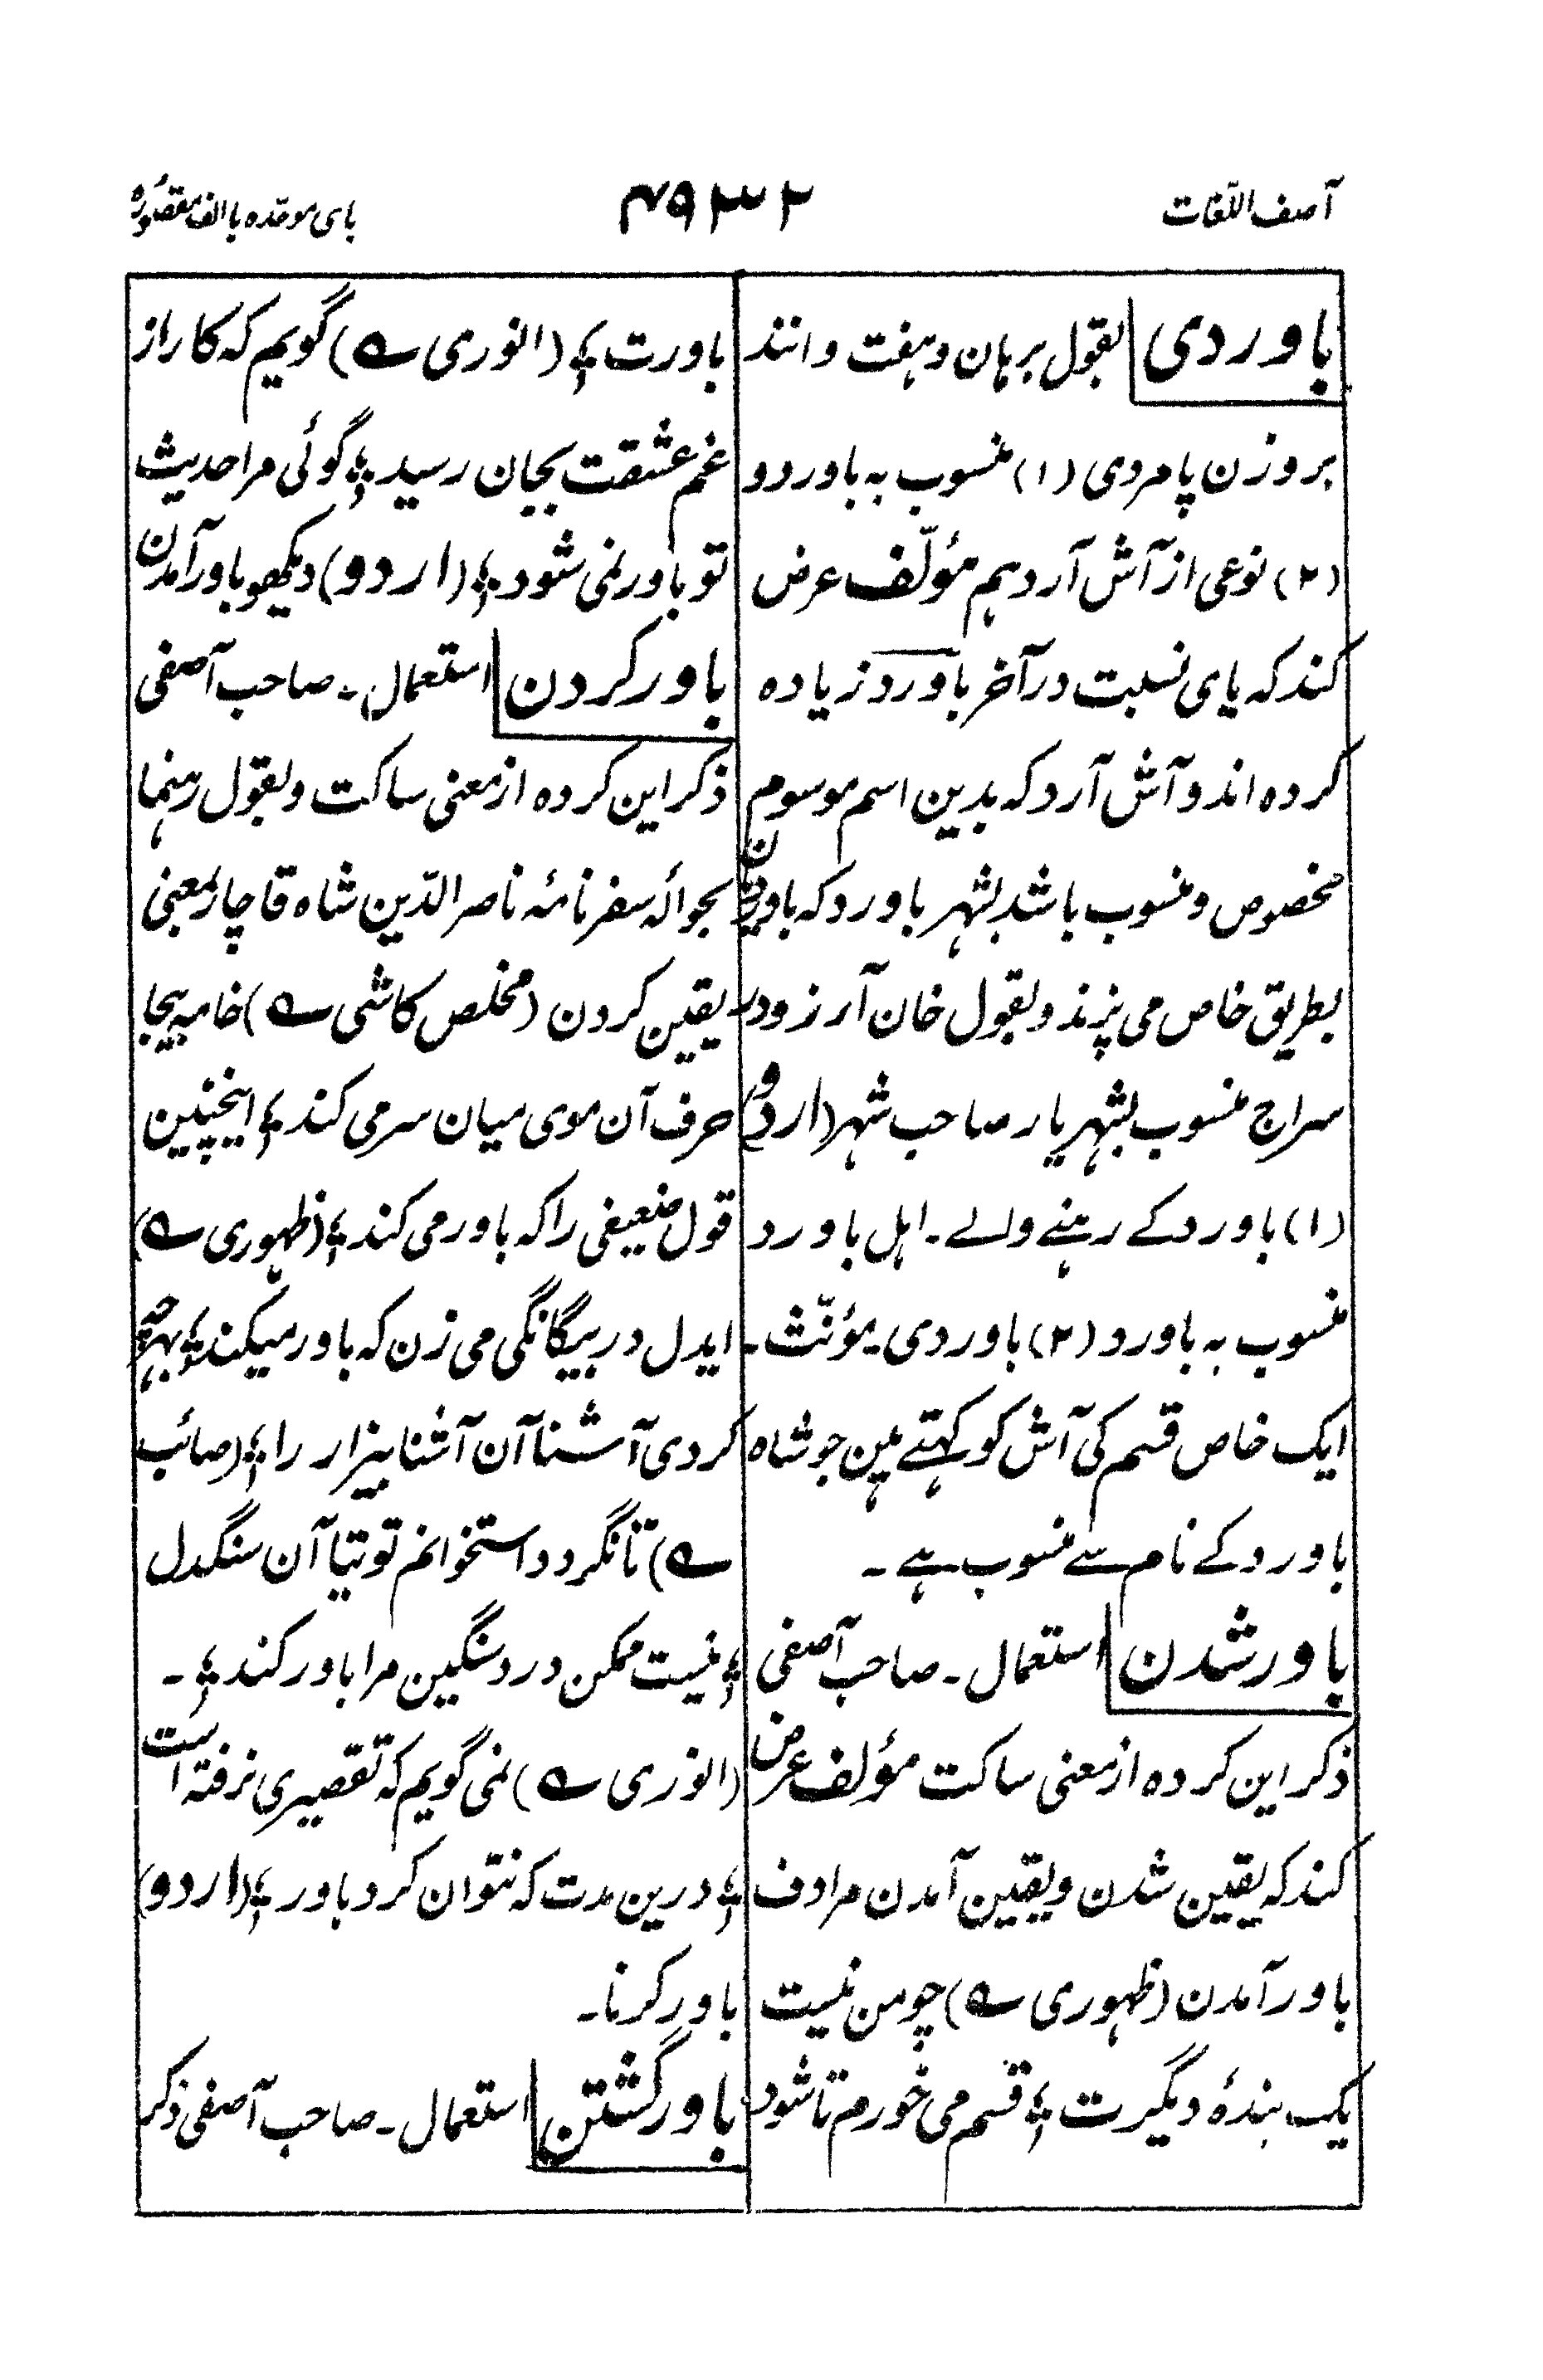 آصف اللّغات
۴۹۳۲
بای موحّده با الف مقصوره
باوردی بقول برہان و ہفت و انند
بر وزن پامردی (۱) منسوب بہ باورد و
(۲) نوعی از آش آرد ہم مؤلّف عرض
کند کہ یای نسبت در آخر باورد زیادہ
کردہ اند و آش آرد کہ بدین اسم موسوم
مخصوص و منسوب باشد بشہر باورد کہ باوردیان
بطریق خاص می پزند و بقول خان آرزو در
سراج منسوب بشہریار صاحب شہر (اردو)
(۱) باورد کے رہنے والے ۔ اہل باورد
منسوب بہ باورد (۲) باوردی ۔ مؤنّث ۔
ایک خاص قسم کی آش کو کہتے ہین جو شاہ
باورد کے نام سے منسوب ہے ۔
باور شدن استعمال ۔ صاحب آصفی
ذکر این کردہ از معنی ساکت مؤلف عرض
کند کہ یقین شدن و یقین آمدن مرادف
باور آمدن (ظہوری ے) چو من نیست
یک بندۂ دیگرت ؛ قسم می خورم تا شود
باورت ؛ (انوری ے) گویم کہ کار از
غم عشقت بجان رسید ؛ گوئی مرا حدیث
تو باور نمی شود ؛ (اردو) دیکھو باور آمدن
باور کردن استعمال ۔ صاحب آصفی
ذکر این کردہ از معنی ساکت و بقول رہنما
بحوالہ سفرنامۂ ناصر الدّین شاہ قاچار بمعنی
یقین کردن (مخلص کاشی ے) خامہ بیجا
حرف آن موی میان سر می کند ؛ اینچنین
قول ضعیفی را کہ باور می کند ؛ (ظہوری ے)
ایدل در بیگانگی می زن کہ باور میکند ؛ بہر چہ
کردی آشنا آن آشنا بیزار را ؛ (صائب
ے) تا نگردد استخوانم توتیا آن سنگدل
؛ نیست ممکن درد سنگین مرا باور کند ؛ ۔
(انوری ے) نمی گویم کہ تقصیری نرفتہ است
؛ درین مدت کہ نتوان کرد باور ؛ (اردو)
باور کرنا ۔
باور گشتن استعمال ۔ صاحب آصفی ذکر